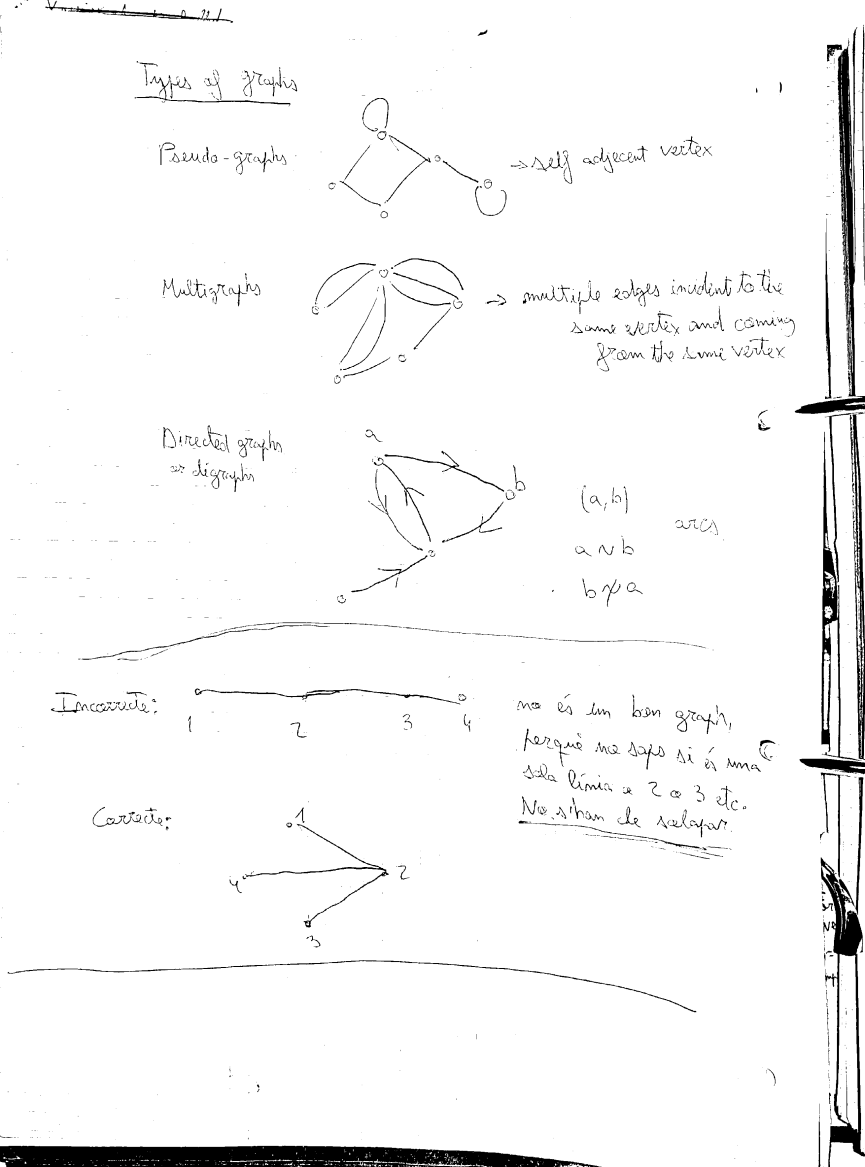 Types of graphs
Pseudo-graphs → self adjecent vertex
Multigraphs → multiple edges incident to the
same vertex and coming
from the same vertex
Directed graphs
or digraphs
a
b
(a,b)
arcs
a ~ b
b ≁ a
Incorrecte:
1 2 3 4
no és un bon graph,
perquè no saps si és una
sola línia o 2 o 3 etc.
No s'han de solapar
Correcte:
1
2
4
3